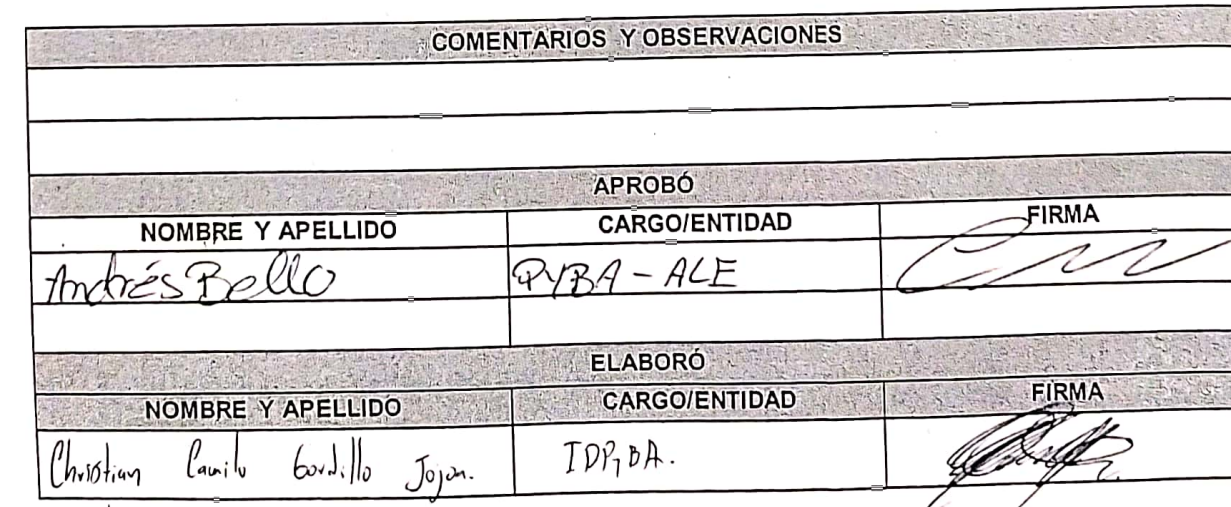 COMENTARIOS Y OBSERVACIONES
APROBÓ
NOMBRE Y APELLIDO CARGO/ENTIDAD FIRMA
Andrés Bello PYBA - ALE
ELABORÓ
NOMBRE Y APELLIDO CARGO/ENTIDAD FIRMA
Christian Camilo Gordillo Jojoa. IDPYBA.